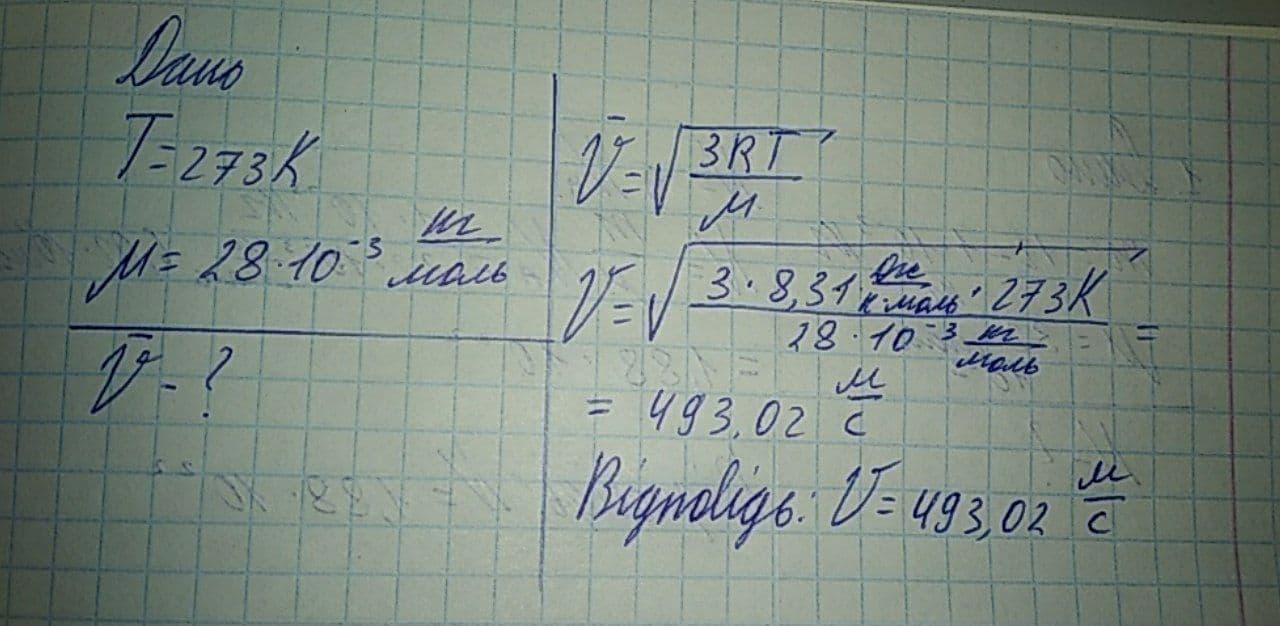 Дано
T = 273 K
M = 28 · 10⁻³ кг/моль
v̄ - ?
v̄ = √(3RT/M)
v̄ = √(3 · 8,31 Дж/К·моль · 273 K / 28 · 10⁻³ кг/моль) =
= 493,02 м/с
Відповідь: v̄ = 493,02 м/с